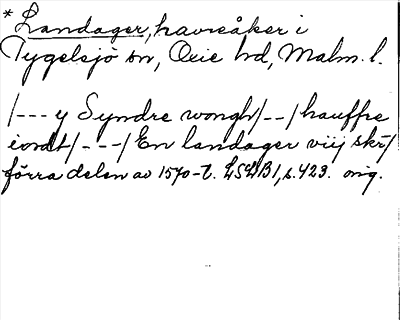 * Landager, havreåker i
Tygelsjö sn, Oxie hd, Malm. l.
/--- y Syndre wongh/--/hauffre
iordt/---/En landager viij skr/
förra delen av 1570-t. LSLB1, s. 423. orig.